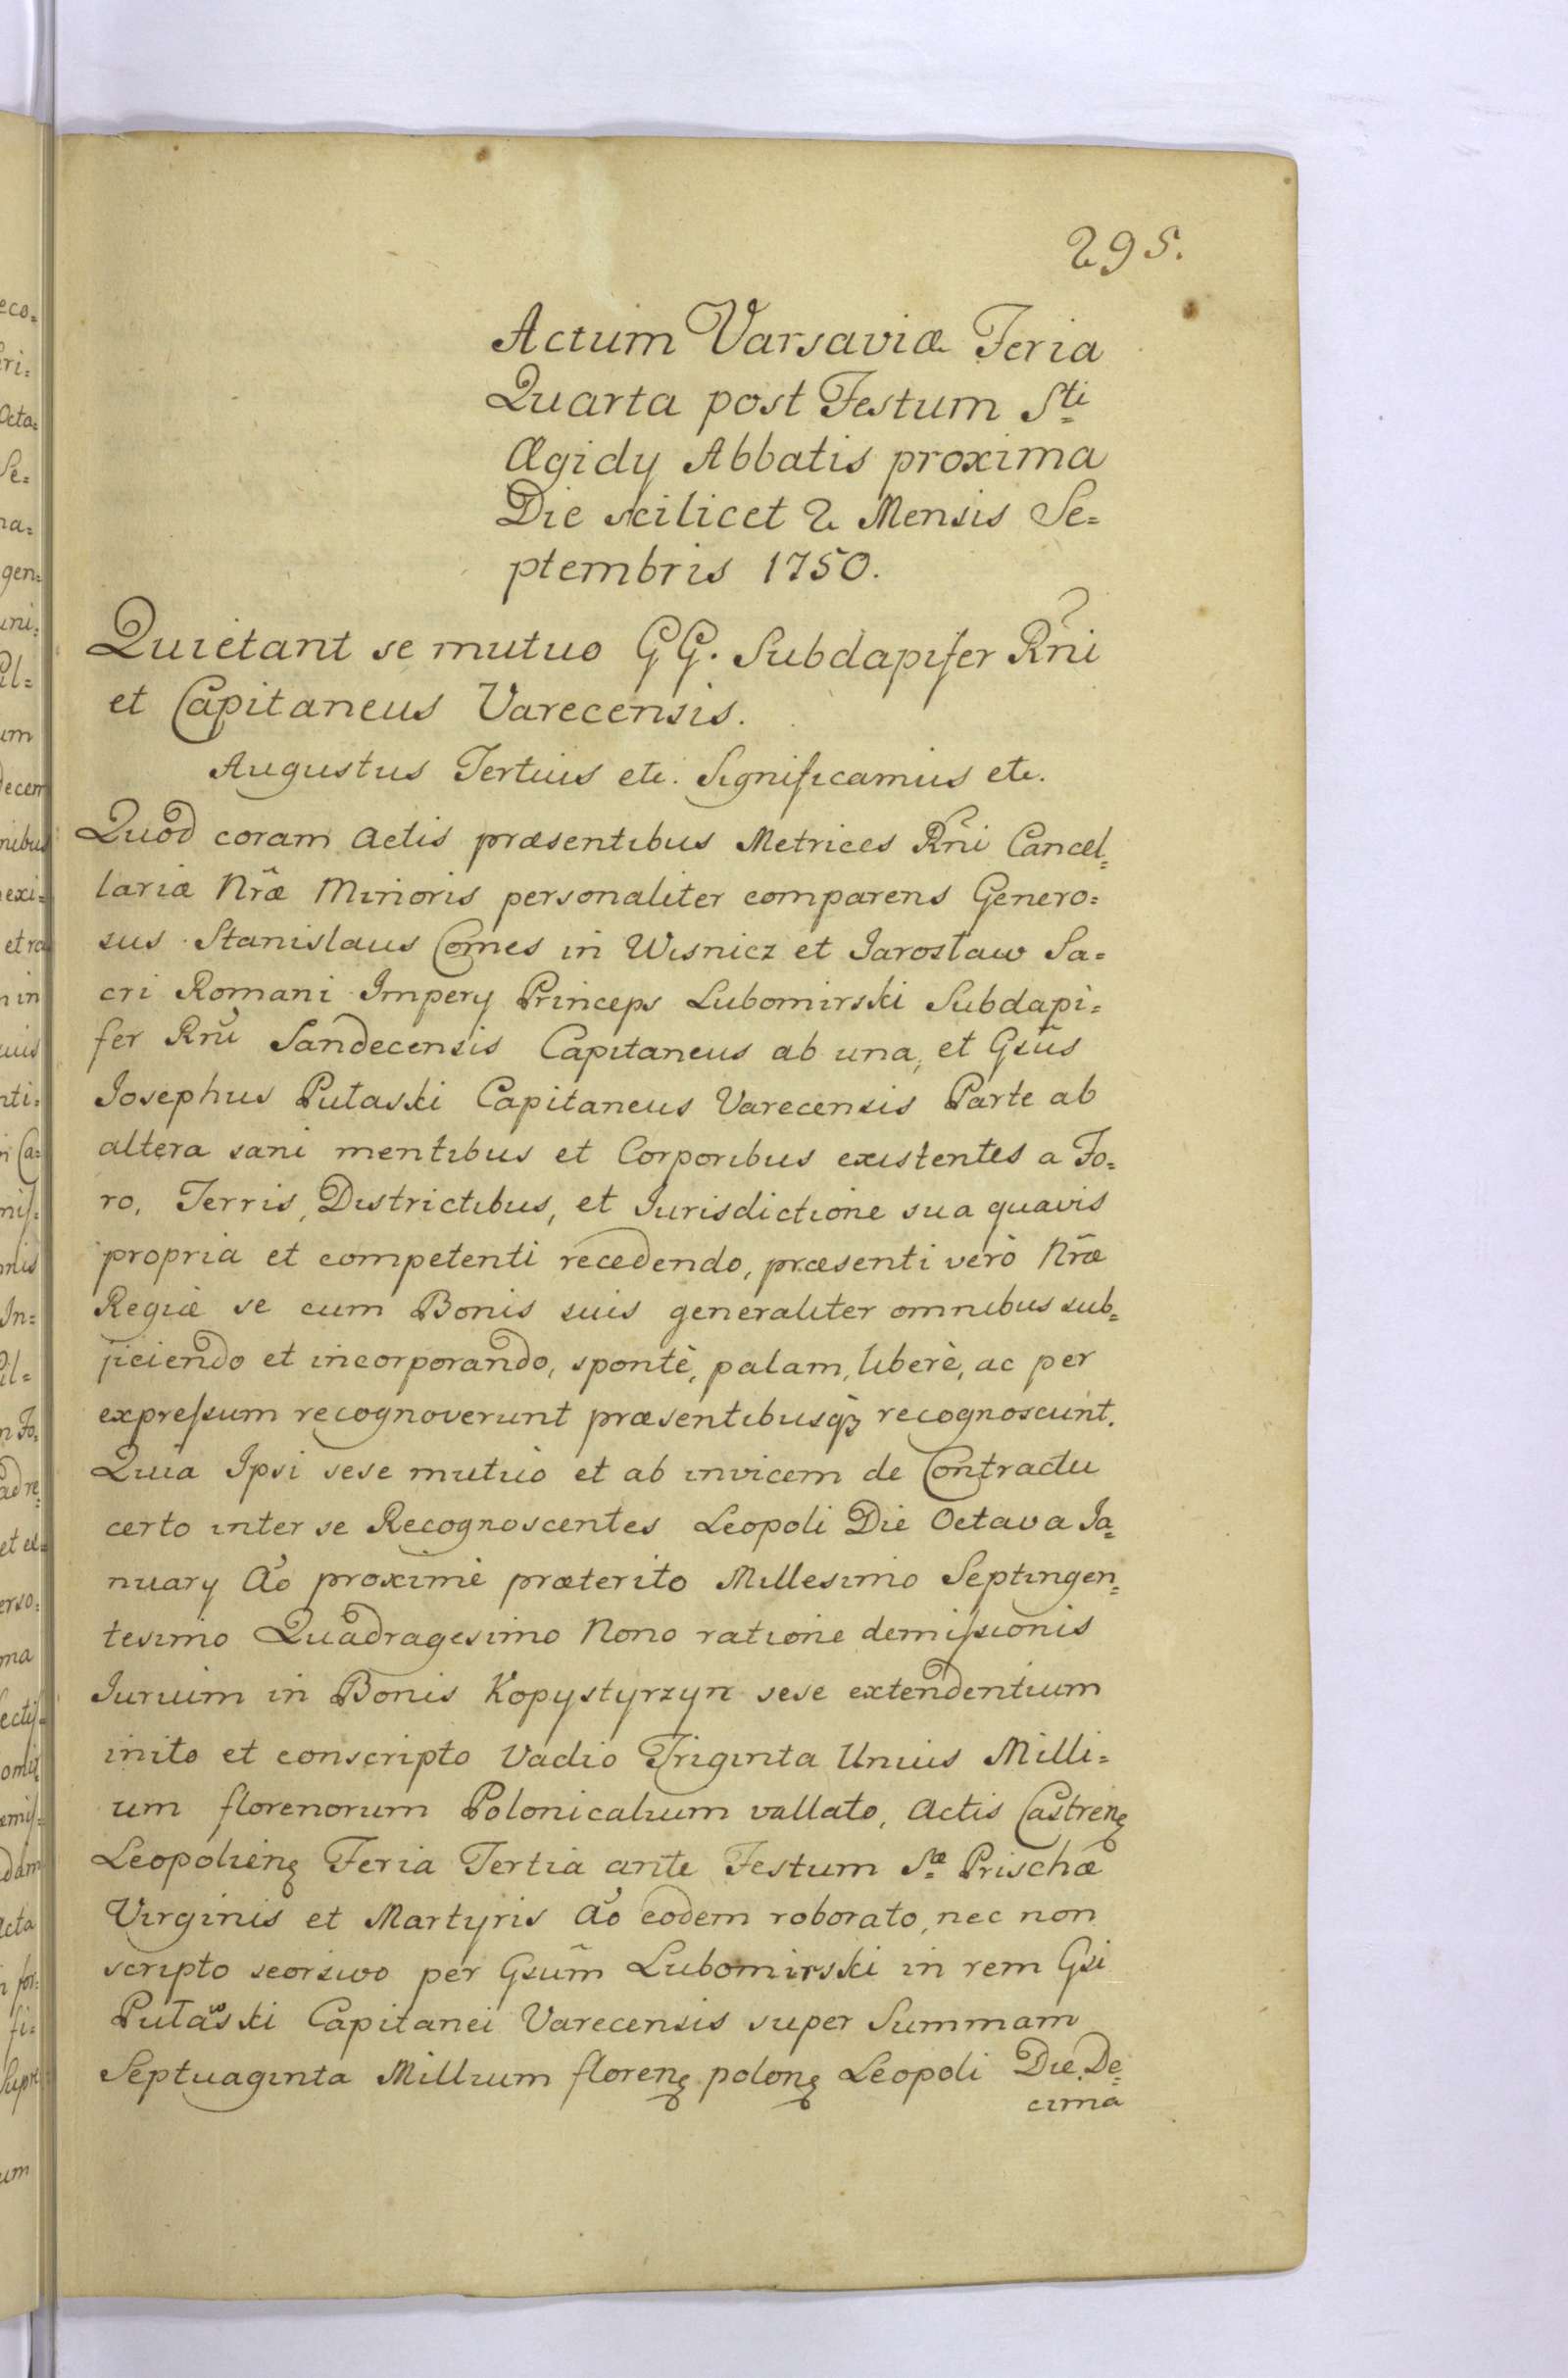 295.
Actum Varsaviæ Feria
Quarta post Festum Sti
Ægidy Abbatis proxima
Die scilicet 2 Mensis Se=
ptembris 1750.
Quietant se mutuo GG. Subdapifer Rñi
et Capitaneus Varecensis.
Augustus Tertius etc. Significamus etc.
Quod coram actis præsentibus Metrices Rñi Cancel=
lariæ Nræ Minoris personaliter comparens Genero=
sus Stanislaus Comes in Wisnicz et Jarosław Sa=
cri Romani Impery Princeps Lubomirski Subdapi=
fer Rnũ Sandecensis Capitaneus ab una, et Gsũs
Josephus Pułaski Capitaneus Varecensis Parte ab
altera sani mentibus et Corporibus existentes a Fo=
ro, Terris, Districtibus, et Jurisdictione sua quavis
propria et competenti recedendo, præsenti verò Nræ
Regiæ se cum Bonis suis generaliter omnibus sub=
jiciendo et incorporando, spontè, palam, liberè, ac per
expressum recognoverunt præsentibusqꝫ recognoscunt.
Quia Ipsi sese mutuò et ab invicem de Contractu
certo inter se Recognoscentes Leopoli Die Octava Ja=
nuary Aõ proximè præterito Millesimo Septingen=
tesimo Quadragesimo Nono ratione demissionis
Jurium in Bonis Kopystyrzyn sese extendentium
inito et conscripto Vadio Triginta Unius Milli=
um florenorum Polonicalium vallato, Actis Castrenꝫ
Leopolienꝫ Feria Tertia ante Festum Stæ Prischæ
Virginis et Martyris Aõ eodem roborato, nec non
scripto seorsivo per Gsũm Lubomirski in rem Gsi
Pułaski Capitanei Varecensis super Summam
Septuaginta Millium florenꝫ polonꝫ Leopoli Die De=
cima